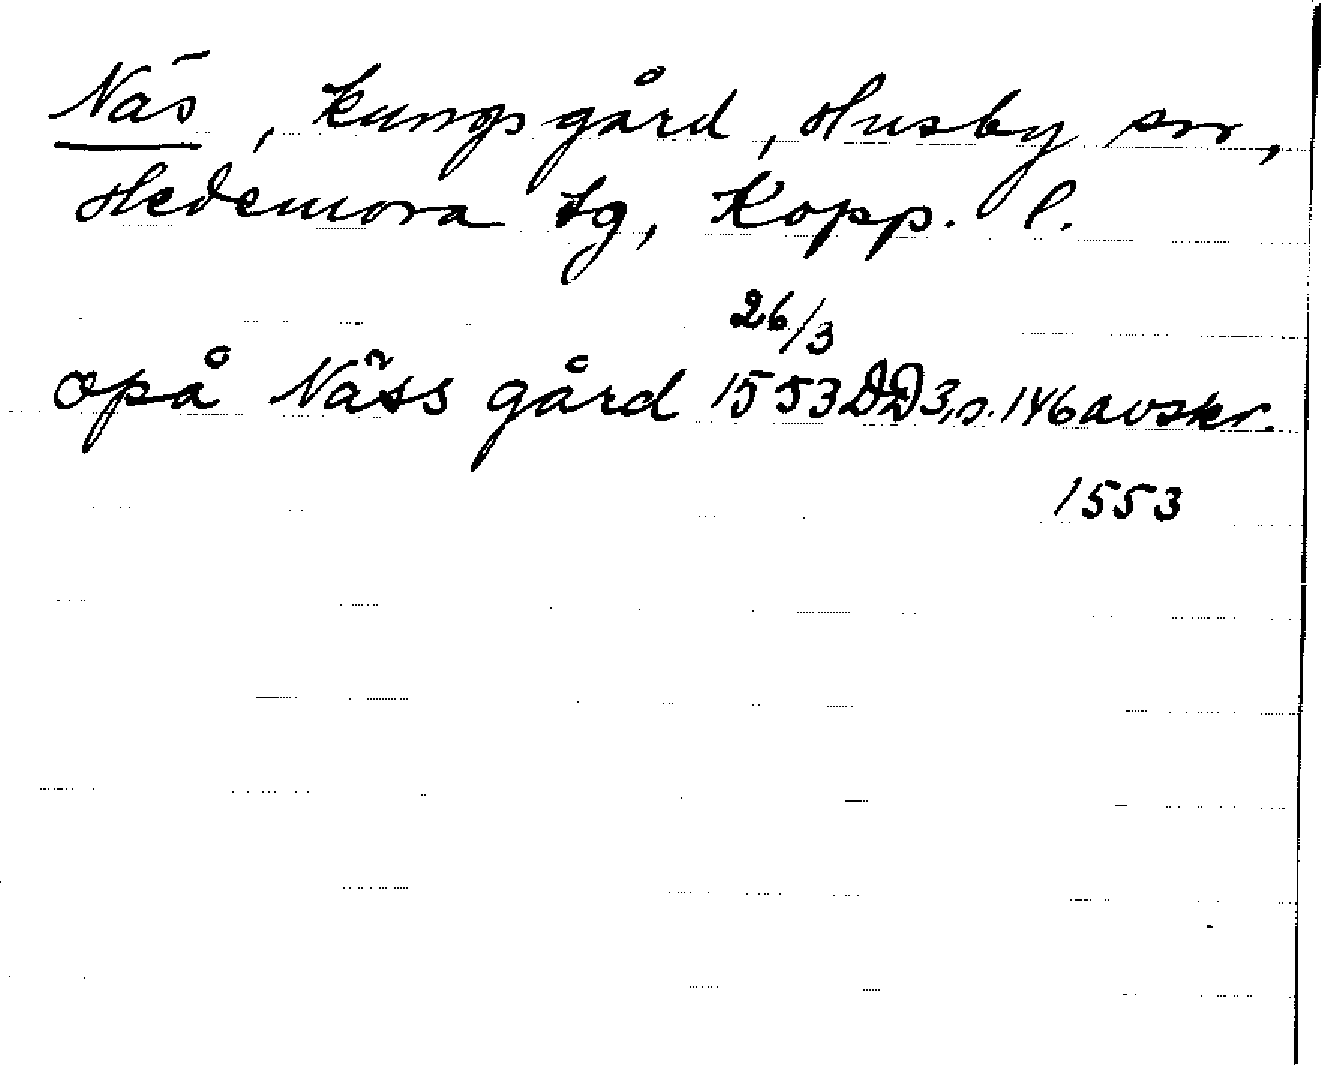 Näs, kungsgård, Husby sn,
Hedemora tg, Kopp. l.
26/3
opå Näss gård 1553 DD3, s. 146 avskr.
1553